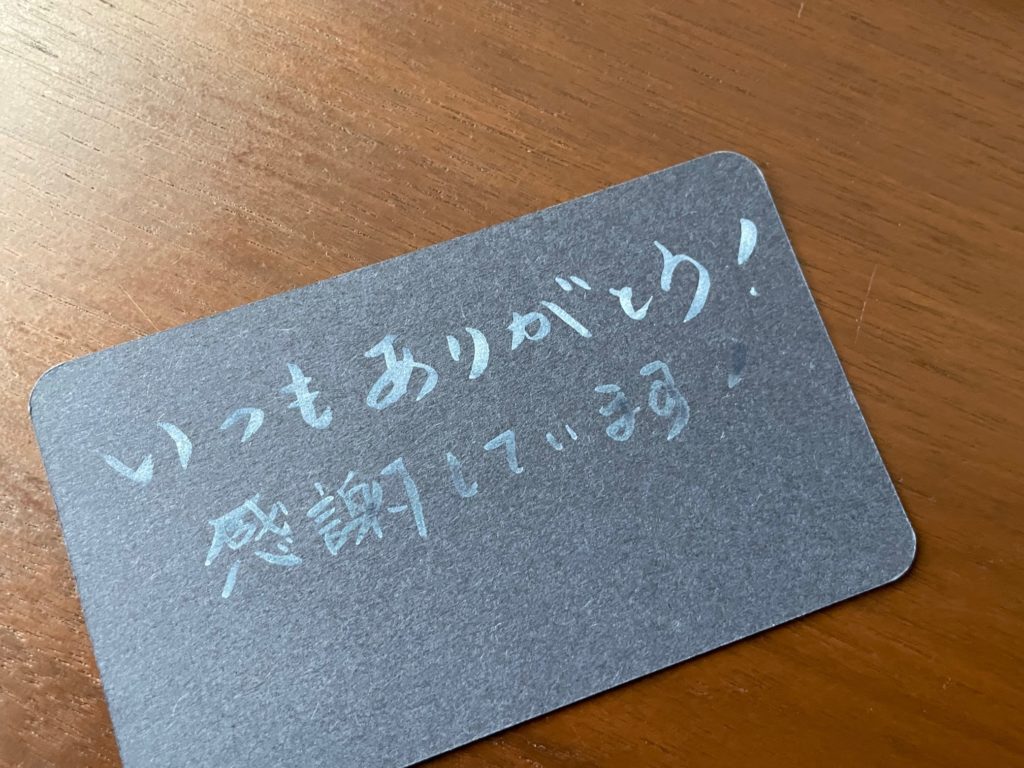 いつもありがとう!
感謝しています!